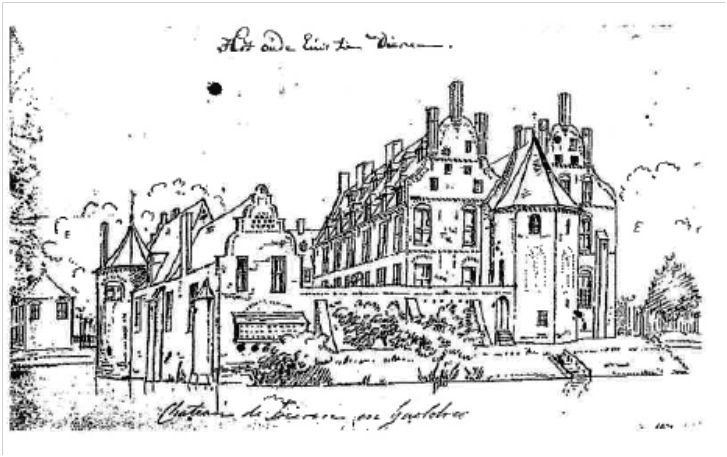 Het oude huis te Dieren.
E
E
Chateau de Dieren en Gueldre